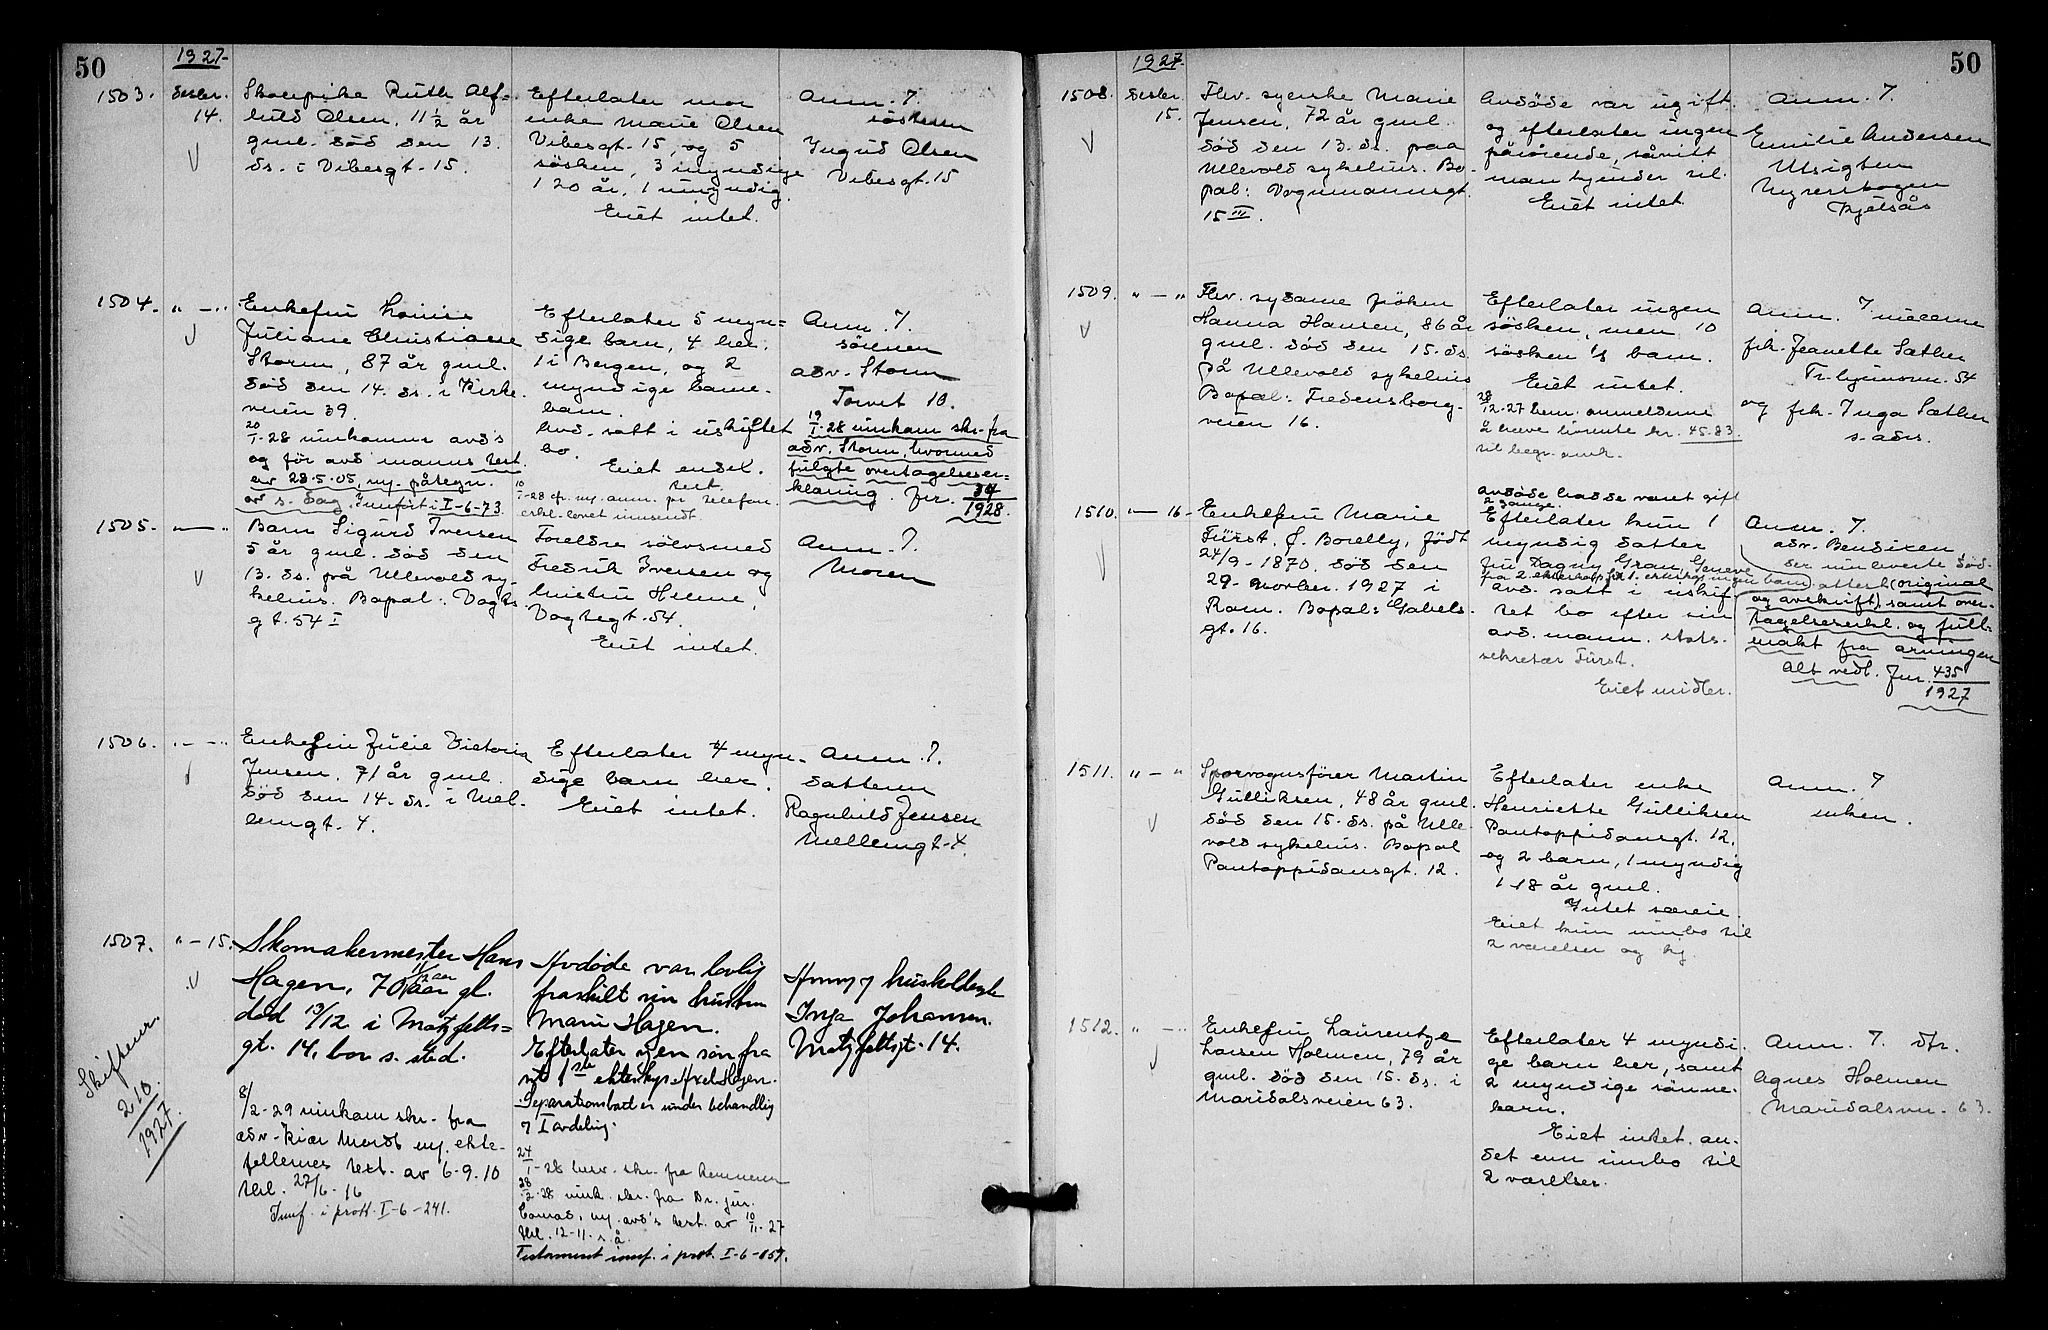 50
1927.
1503. Desbr. 14.
Skolepike Ruth Alf-
hild Olsen, 11 1/2 år
gml. död den 13.
ds. i Vibesgt. 15.
Efterlater mor
enke Marie Olsen
Vibesgt. 15, og 5
söskén, 3 myndige
1 20 år, 1 umyndig.
Eiet intet.
Anm. 7.
Ingrid Olsen
Vibesgt. 15
1504. " — "
Enkefru Louise
Juliane Christiane
Storm, 87 år gml.
död den 14. ds. i Kirke-
veien 39.
20/1-28 innkommer avd's
og for avd manns test.
av 28-5-05, m. påtegn.
av s. dag. Innfört i I-6-73.
Efterlater 5 myn=
dige barn, 4 her.
1 i Bergen, og 2
myndige barne-
barn.
Avd. satt i uskiftet
bo.
Eiet endel.
test.
10/1-28 ny. anm. pr telefon.
erkl. lovet innsendt
Anm. 7.
sönnen
adv. Storm
Torvet 10.
19/1-28 innkom skr. fra
adv. Storm, hvormed
fulgte overtagelseser=
klæring. Jnr. 34/1928.
1505. " — "
Barn Sigurd Iversen
5 år gml. död den
13. ds. på Ullevold sy-
kehus. Bopæl: Vogts
gt. 54 I
Foreldre sölvsmed
Fredrik Iversen og
hustru Helene,
Vogtsgt. 54.
Eiet intet.
Anm. 7.
Moren
1506. " — "
Enkefru Julie Victoria
Jensen, 71 år gml.
död den 14. ds. i Mel-
lemgt. 4.
Efterlater 4 myn-
dige barn her.
Eiet intet.
Anm. 7.
datteren
Ragnhild Jensen
Mellemgt. 4.
1507. " — 15.
Skomakermester Hans
Hagen, 70 11/12 aar gl.
död 13/12 i Motzfelts=
gt. 14, bor s. sted.
8/2-29 innkom skr. fra
adv. Kiær Mordt m. ekte-
fellernes test. av 6-9-10
tkl. 27/6-16
Innf. i prot. I-6-241.
Skiftejnr.
210/1927.
Avdöde var lovlig
fraskilt sin hustru
Marie Hagen.
Efterlater igjen sön fra
sit 1ste ekteskap Axel Hagen.
Separationsboet er under behandling
7 I avdeling.
24/1-28 henv. skr. fra Kemneren
28/2-28 innk. skr. fra Dr. jur.
m. avd's test. av 10/11-27
tkl. 12-11-s.å.
Testament innf. i prot. I-6-
Anm 7 husholderske
Inga Johansen.
Motzfeltsgt. 14.
50
1927.
1508. Desbr. 15.
Fhv. syerske Marie
Jensen, 72 år gml.
död den 13. ds. paa
Ullevold sykehus. Bo-
pæl: Vognmannsgt.
15 III.
Avdöde var ugift
og efterlater ingen
pårörende, såvitt
man kjender til.
Eiet intet.
Anm. 7.
Emilie Andersen
Utsigten
Kjelsås
1509. " — "
Fhv. sydame fröken
Hanna Hansen, 86 år
gml. död den 15. ds.
på Ullevold sykehus
Bopæl: Fredensborg-
veien 16.
Efterlater ingen
söskén, men 10
söskén's barn.
Eiet intet.
28/12-27 hen. anmelderne
å heve inntil kr. 45.83.
til begr. omk.
Anm. 7 niecerne
frk. Jeanette Sæther
54
og frk. Inga Sæther
s. adr.
1510. " — 16 —
Enkefru Marie
Fürst, f. Borelly, födt
24/9-1870. död den
29. novbr. 1927 i
Rom. Bopæl: Gabels-
gt. 16.
avdöde hadde været gift
2 gange.
Efterlater kun 1
myndig datter
fru Dagny Gran, Geneve
fra 2. ekteskap, fra 1. ekteskap ingen barn.
avd. satt i uskif-
tet bo efter sin
avd. mann. stats-
sekretær Fürst.
Eiet midler.
Anm. 7.
adv. Bendixen
der innleverte död-
attest (original
og avskrift) samt over-
tagelseserkl. og full-
makt fra arvingen
Alt vedl. Jnr. 435/1927
1511. " — "
Sporvognsförer Martin
Gulliksen, 48 år gml.
död den 15. ds. på Ulle-
vold sykehus. Bopæl
Pontoppidansgt. 12.
Efterlater enke
Henriette Gulliksen
Pontoppidansgt. 12.
og 2 barn, 1 myndig
1 18 år gml.
Intet særeie.
Eiet kun innbo til
2 værelser og kj.
Anm. 7
enken.
1512. " — "
Enkefru Laurentze
Larsen Holmen, 79 år
gml. död den 15. ds. i
Maridalsveien 63.
Efterlater 4 myndi-
ge barn her, samt
2 myndige sönne-
barn.
Eiet intet an-
det enn innbo til
2 værelser.
Anm. 7. dtr.
Agnes Holmen
Maridalsvn. 63.